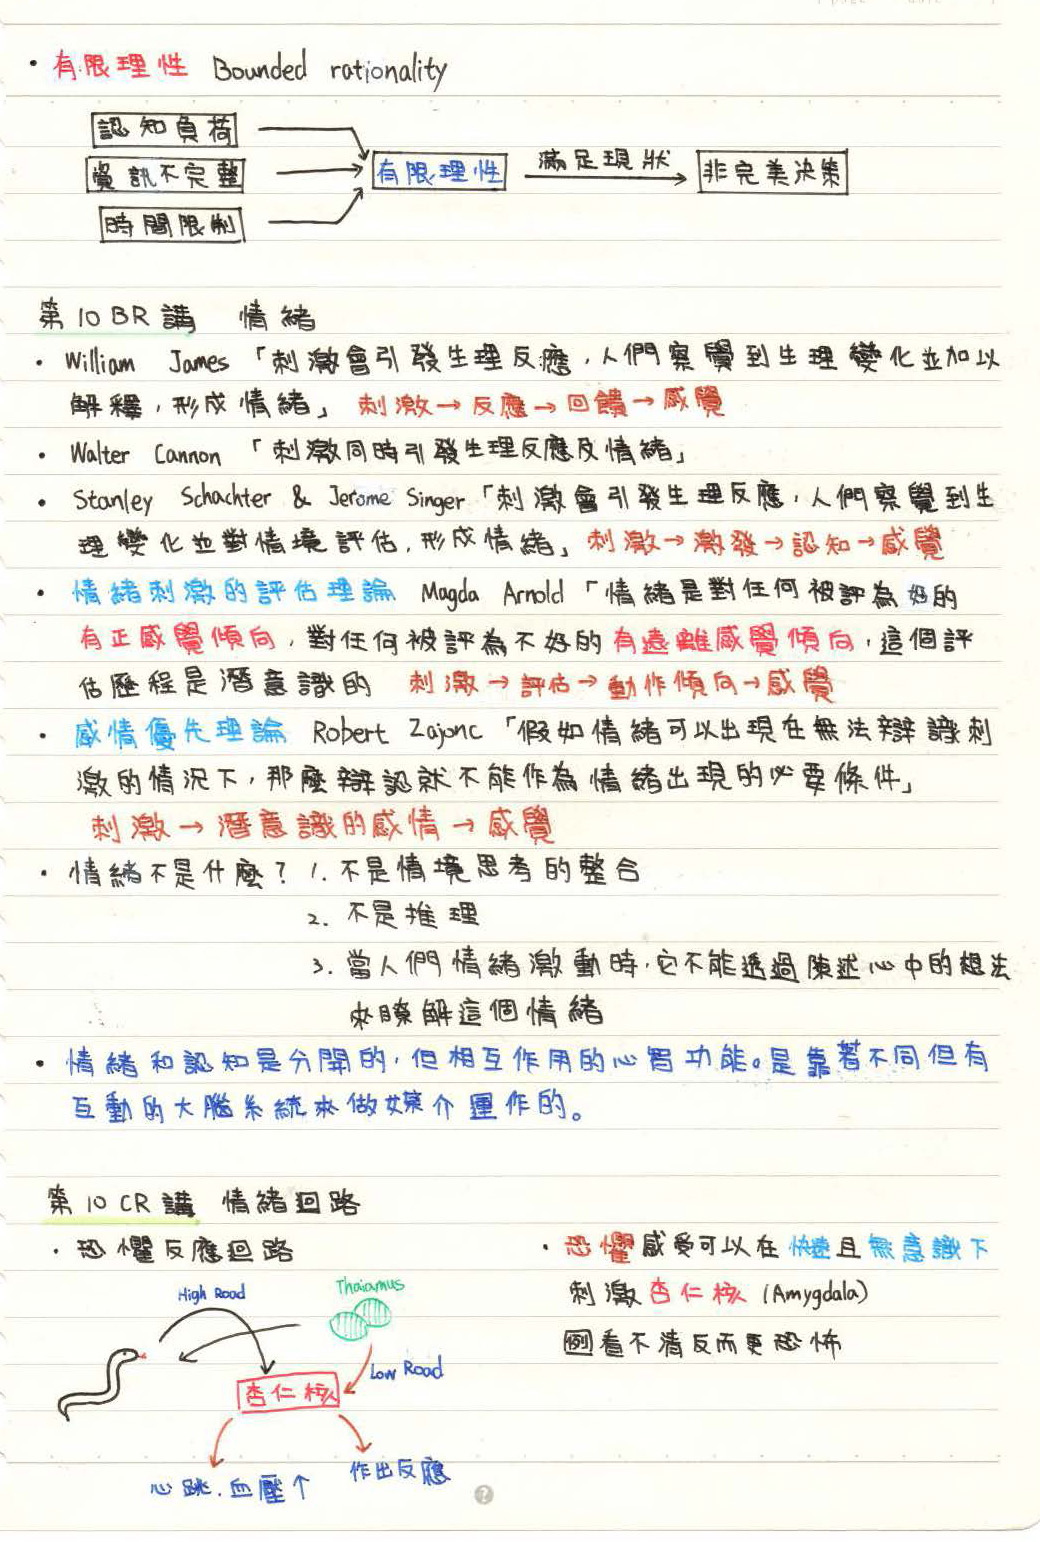 • 有限理性 Bounded rationality
認知負荷
資訊不完整
時間限制
有限理性
滿足現狀
非完美決策
第10BR講 情緒
• William James「刺激會引發生理反應,人們察覺到生理變化並加以
解釋,形成情緒」 刺激→反應→回饋→感覺
• Walter Cannon 「刺激同時引發生理反應及情緒」
• Stanley Schachter & Jerome Singer「刺激會引發生理反應,人們察覺到生
理變化並對情境評估,形成情緒」 刺激→激發→認知→感覺
• 情緒刺激的評估理論 Magda Arnold「情緒是對任何被評為好的
有正感覺傾向,對任何被評為不好的有遠離感覺傾向,這個評
估歷程是潛意識的 刺激→評估→動作傾向→感覺
• 感情優先理論 Robert Zajonc「假如情緒可以出現在無法辯識刺
激的情況下,那麼辯認就不能作為情緒出現的必要條件」
刺激→潛意識的感情→感覺
• 情緒不是什麼? 1. 不是情境思考的整合
2. 不是推理
3. 當人們情緒激動時,它不能透過陳述心中的想法
來瞭解這個情緒
• 情緒和認知是分開的,但相互作用的心智功能。是靠著不同但有
互動的大腦系統來做媒介運作的。
第10CR講 情緒迴路
• 恐懼反應迴路
• 恐懼感受可以在快速且無意識下
刺激杏仁核 (Amygdala)
例看不清反而更恐怖
High Road
Thalamus
Low Road
杏仁核
心跳.血壓↑
作出反應
?